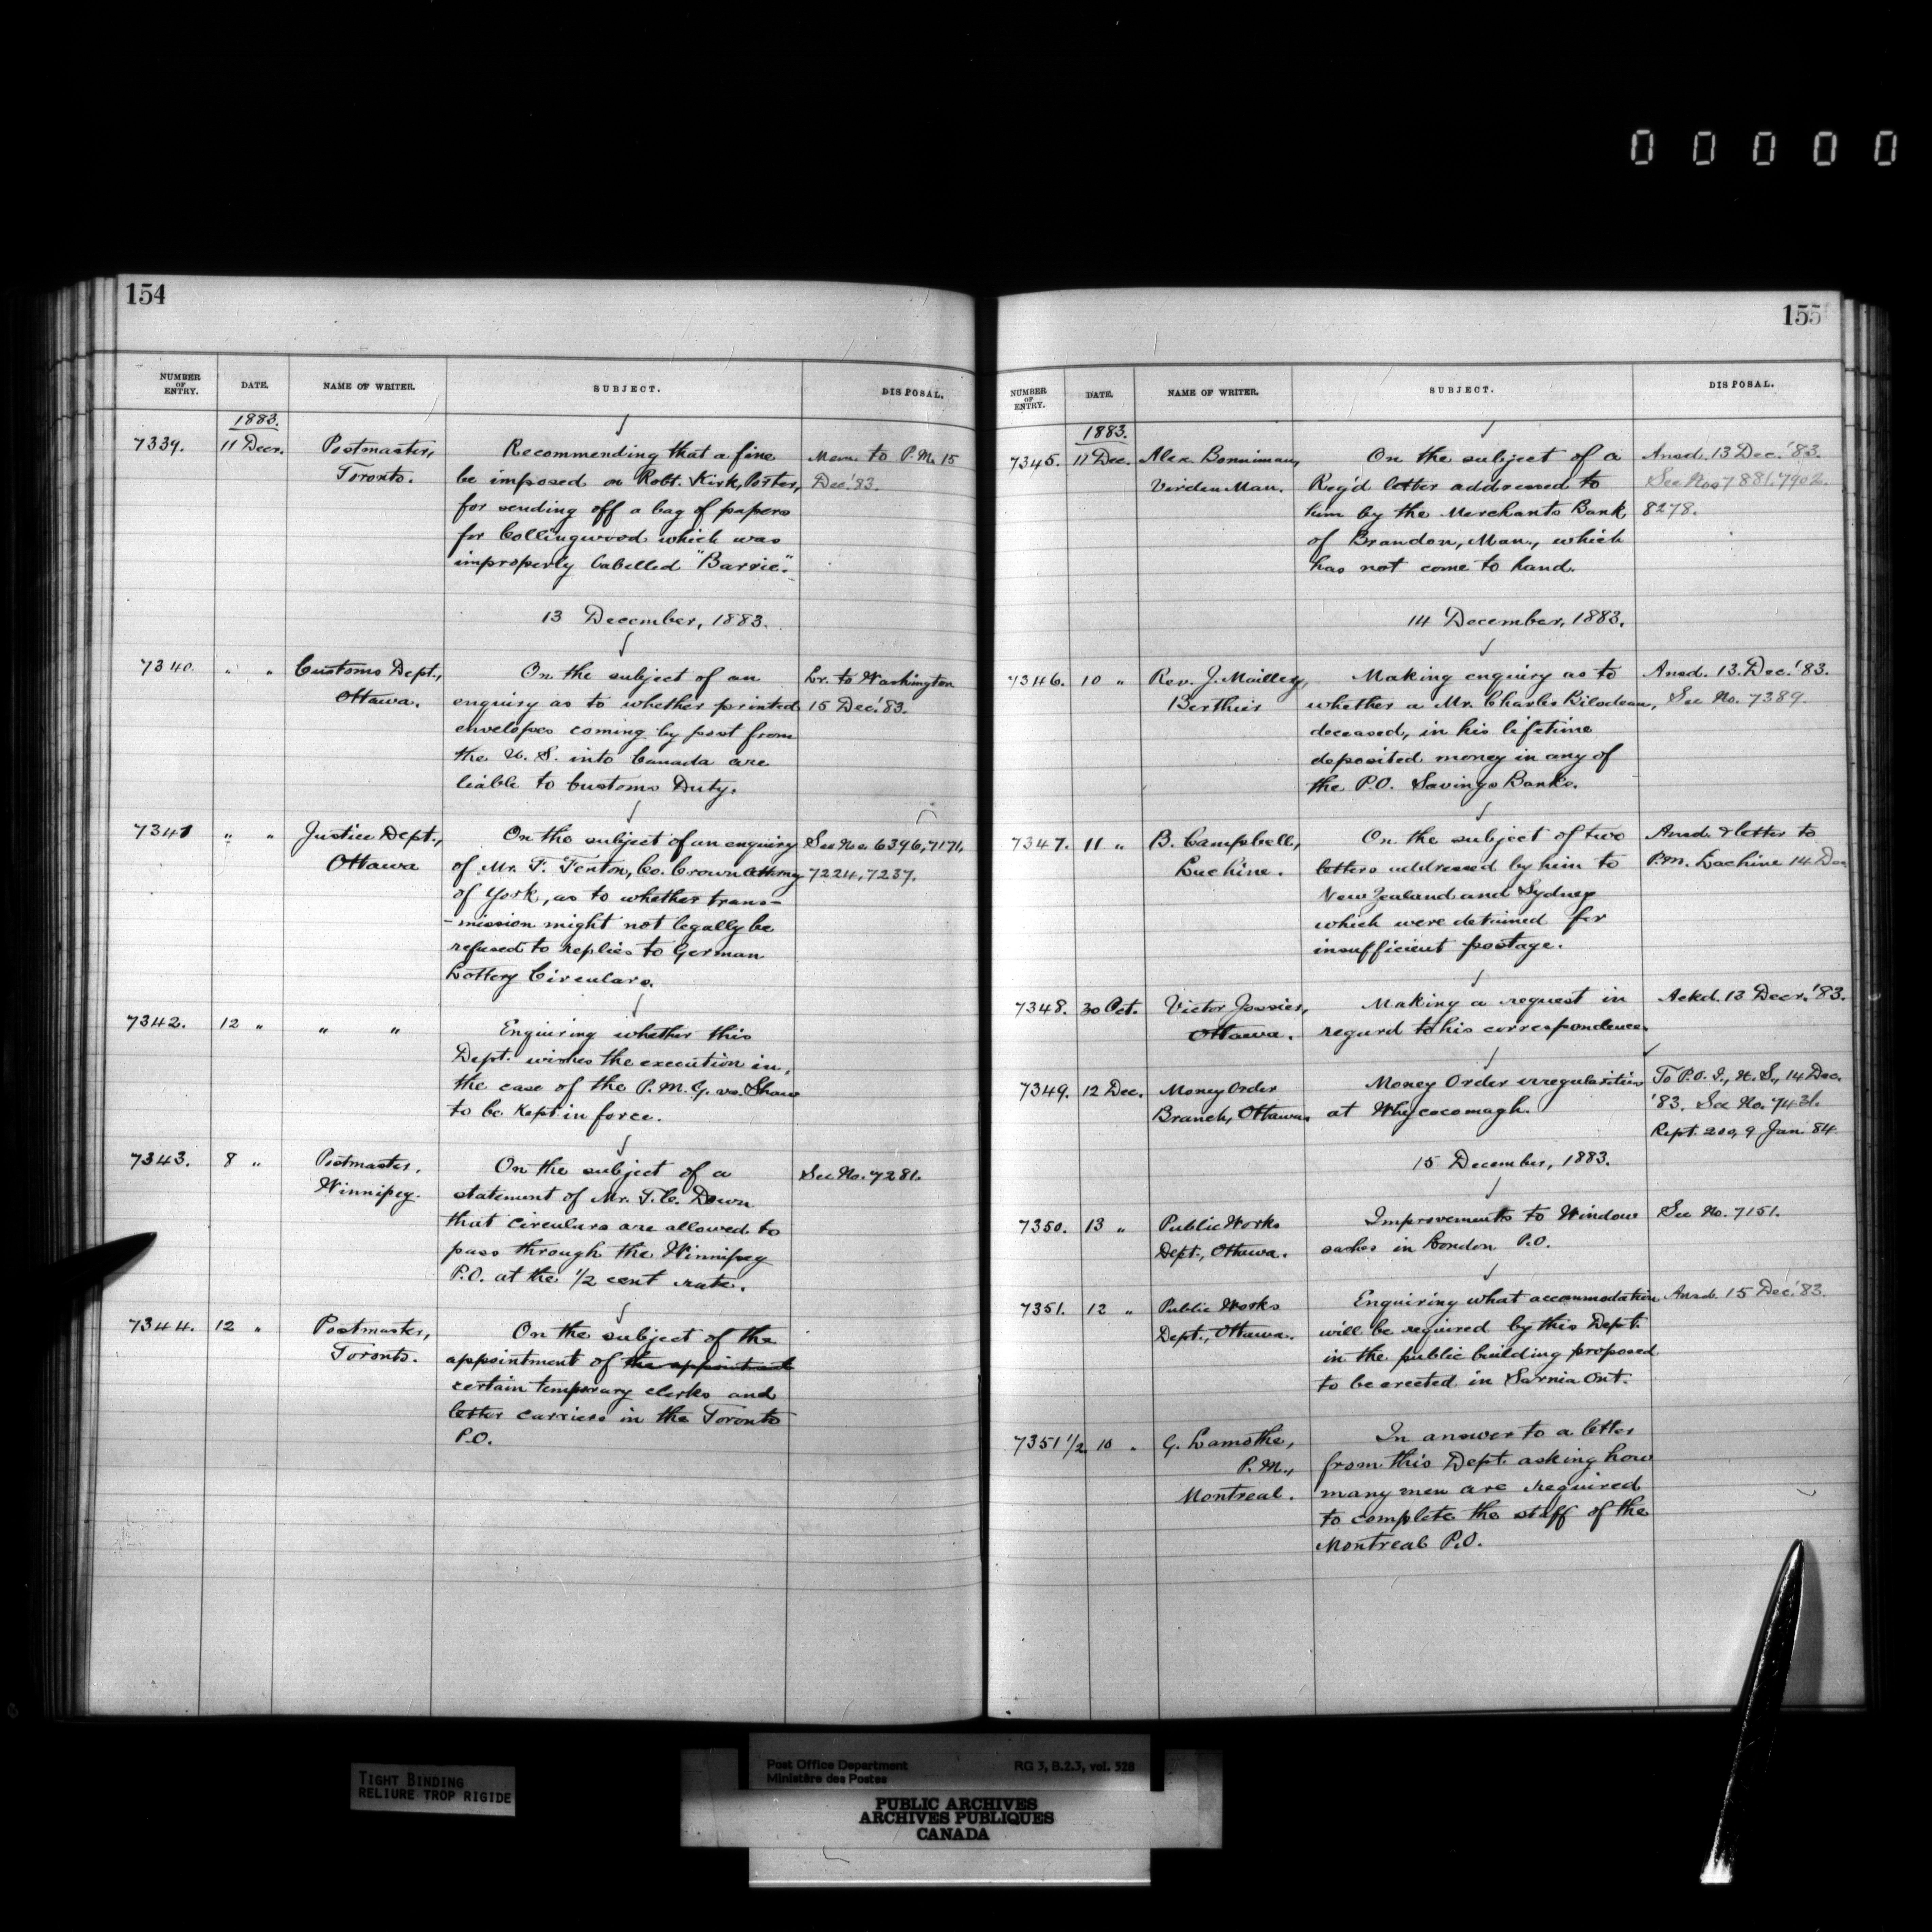 0 0 0 0 0
154
NUMBER OF ENTRY. DATE. NAME OF WRITER. SUBJECT. DISPOSAL.
1883.
7339. 11 Decr. Postmaster, Recommending that a fine Mem. to P.M. 15
Toronto. be imposed on Robt. Kirk, Porter, Dec. '83.
for sending off a bag of papers
for Collingwood which was
improperly labelled "Barrie".
13 December, 1883.
7340. " " Customs Dept., On the subject of an Lr. to Washington
Ottawa. enquiry as to whether printed 15 Dec. '83.
envelopes coming by post from
the U. S. into Canada are
liable to Customs Duty.
7341 " " Justice Dept., On the subject of an enquiry See Nos. 6396, 7171,
Ottawa of Mr. F. Fenton, Co. Crown Attorney 7224, 7237.
of York, as to whether trans-
-mission might not legally be
refused to replies to German
Lottery Circulars.
7342. 12 " " " Enquiring whether this
Dept. wishes the execution in
the case of the P.M.G. vs. Shaw
to be kept in force.
7343. 8 " Postmaster, On the subject of a See No. 7281.
Winnipeg. statement of Mr. T.C. Down
that circulars are allowed to
pass through the Winnipeg
P.O. at the 1/2 cent rate.
7344. 12 " Postmaster, On the subject of the
Toronto. appointment of the appointment
certain temporary clerks and
letter carriers in the Toronto
P.O.
155
NUMBER OF ENTRY. DATE. NAME OF WRITER. SUBJECT. DISPOSAL.
1883.
7345. 11 Dec. Alex. Bonniman, On the subject of a Ansd. 13 Dec. '83.
Virden Man. Reg'd letter addressed to See Nos 7881, 7902.
him by the Merchants Bank 8278.
of Brandon, Man., which
has not come to hand.
14 December, 1883.
7346. 10 " Rev. J. Mailley, Making enquiry as to Ansd. 13. Dec. '83.
Berthier whether a Mr. Charles Bilodeau, See No. 7389.
deceased, in his lifetime
deposited money in any of
the P.O. Savings Banks.
7347. 11 " B. Campbell, On the subject of two Ansd. & letter to
Lachine. letters addressed by him to P.M. Lachine 14 Dec
New Zealand and Sydney
which were detained for
insufficient postage.
7348. 30 Oct. Victor Jossier, Making a request in Ackd. 13 Decr. '83.
Ottawa. regard to his correspondence
7349. 12 Dec. Money Order Money Order irregularities To P.O.I., N.S., 14 Dec.
Branch, Ottawa. at Whycocomagh. '83. See No. 7431.
Rept. 200, 9 Jan. 84.
15 December, 1883.
7350. 13 " Public Works Improvements to Window See No. 7151.
Dept., Ottawa. sashes in London P.O.
7351. 12 " Public Works Enquiring what accommodation Ansd. 15 Dec. '83.
Dept., Ottawa. will be required by this Dept.
in the public building proposed
to be erected in Sarnia Ont.
7351 1/2 10 " G. Lamothe, In answer to a letter
P.M., from this Dept. asking how
Montreal. many men are required
to complete the staff of the
Montreal P.O.
TIGHT BINDING
RELIURE TROP RIGIDE
Post Office Department RG 3, B.2.3, vol. 528
Ministère des Postes
PUBLIC ARCHIVES
ARCHIVES PUBLIQUES
CANADA